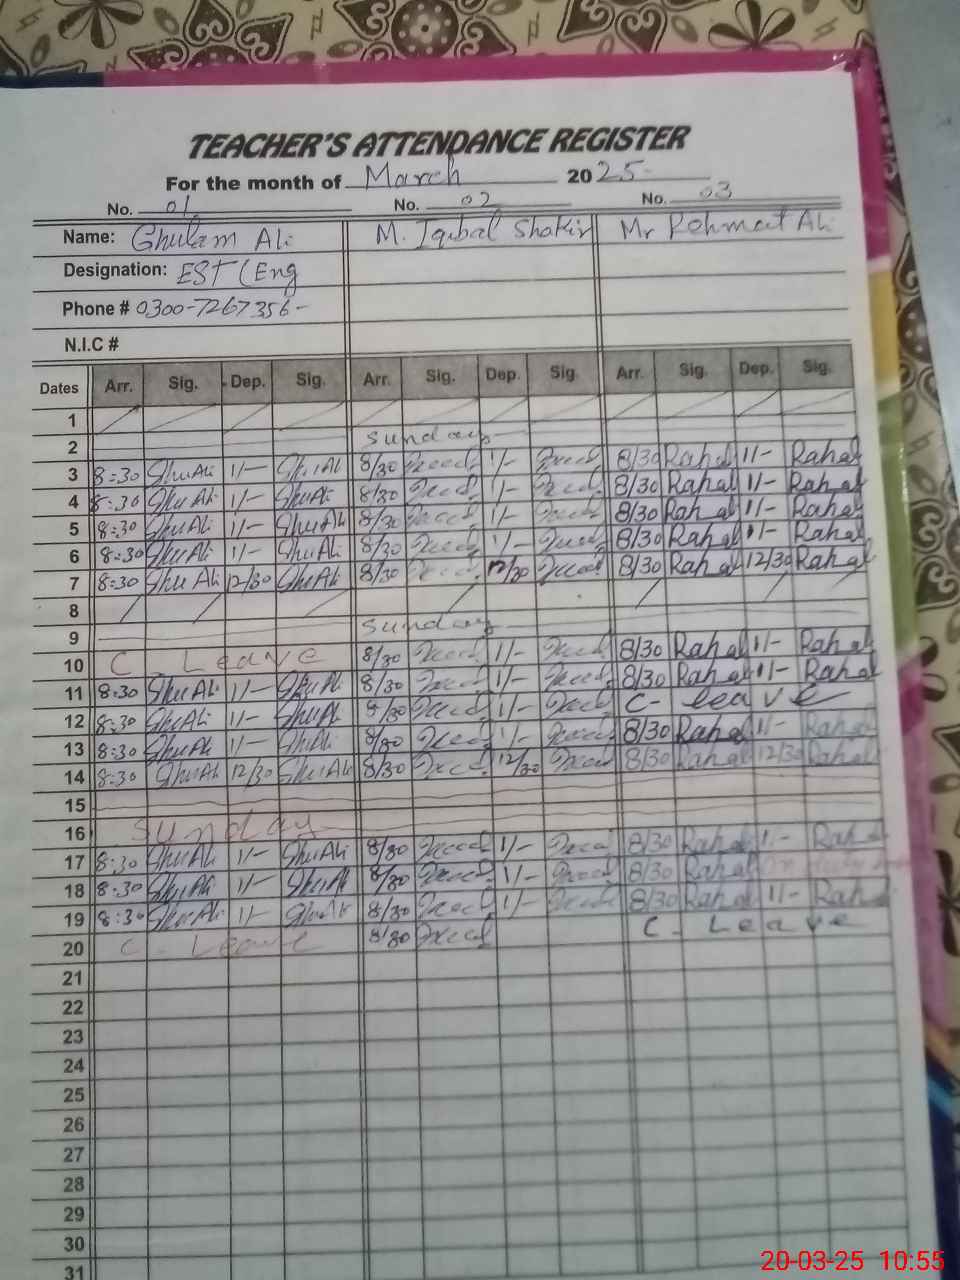 TEACHER'S ATTENDANCE REGISTER
For the month of March 2025-
No. 01 No. 02 No. 03
Name: Ghulam Ali M. Iqbal Shakir Mr Rehmat Ali
Designation: EST (Eng
Phone # 0300-7267356-
N.I.C #
Dates Arr. Sig. Dep. Sig. Arr. Sig. Dep. Sig. Arr. Sig. Dep. Sig.
1
2 Sunday
3 8:30 GhuAli 1/- GhuAli 8/30 1/- 8/30 Rahal 1/- Rahal
4 8:30 GhuAli 1/- GhuAli 8/30 1/- 8/30 Rahal 1/- Rahal
5 8:30 GhuAli 1/- GhuAli 8/30 1/- 8/30 Rahal 1/- Rahal
6 8:30 GhuAli 1/- GhuAli 8/30 1/- 8/30 Rahal 1/- Rahal
7 8:30 GhuAli 12/30 GhuAli 8/30 12/30 8/30 Rahal 12/30 Rahal
8
9 Sunday
10 C Leave 8/30 1/- 8/30 Rahal 1/- Rahal
11 8:30 GhuAli 1/- GhuAli 8/30 1/- 8/30 Rahal 1/- Rahal
12 8:30 GhuAli 1/- GhuAli 8/30 1/- C- leave
13 8:30 GhuAli 1/- GhuAli 8/30 1/- 8/30 Rahal 1/- Rahal
14 8:30 GhuAli 12/30 GhuAli 8/30 12/30 8/30 Rahal 12/30 Rahal
15
16 Sunday
17 8:30 GhuAli 1/- GhuAli 8/30 1/- 8/30 Rahal 1/- Rahal
18 8:30 GhuAli 1/- GhuAli 8/30 1/- 8/30 Rahal
19 8:30 GhuAli 1/- GhuAli 8/30 1/- 8/30 Rahal 1/- Rahal
20 C - Leave 8/30 C - Leave
21
22
23
24
25
26
27
28
29
30
31
20-03-25 10:55